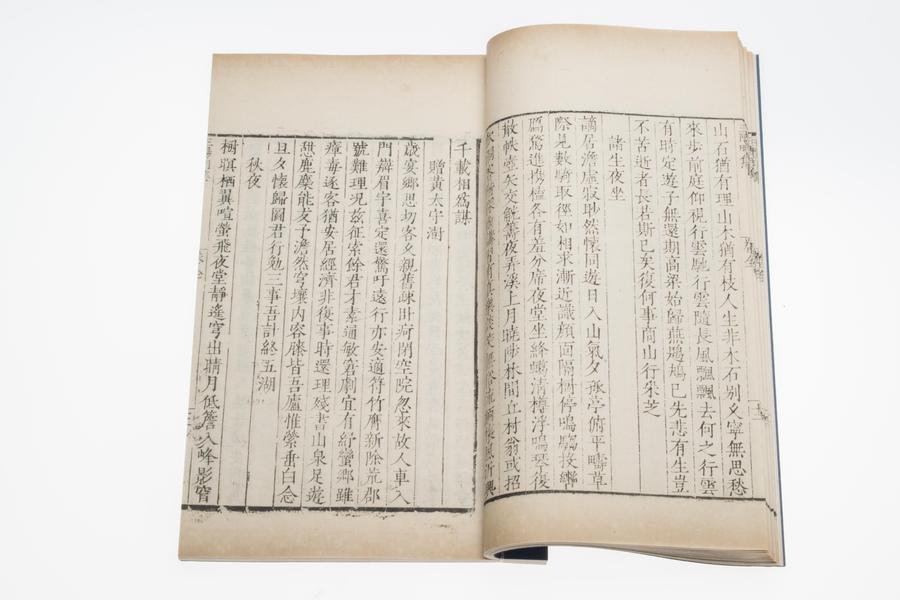 山石猶有理山木猶有枝人生非木石別久寧無思愁
來步前庭仰視行雲馳行雲隨長風飄飄去何之行雲
有時定遊子無還期高梁始歸燕鶗鴂已先悲有生豈
不苦逝者長若斯已矣後何事商山行采芝
諸生夜坐
謫居澹虛寂眇然懷同遊日入山氣夕孤亭俯平疇草
際見數騎取徑如相求漸近識顏面隔樹停鳴騶投轡
鴈鶩進攜榼各有羞分席夜堂坐絳蠟清樽浮鳴琴復
散帙壺矢交觥籌夜弄溪上月曉陟林間丘村翁或招
千載相為謀
贈黃太守澍
歲宴鄉思切客久親舊疎臥疴閉空院忽來故人車入
門辯眉宇喜定還驚吁遠行亦安適符竹膺新除荒郡
號難理況茲征索餘君才素通敏窘劇宜有紓蠻鄉雖
瘴毒逐客猶安居經濟非復事時還理殘書山泉足遊
憩鹿麋能友予澹然穹壤內容膝皆吾廬惟縈垂白念
旦夕懷歸圖君行勉三事吾計終五湖
秋夜
樹暝栖翼喧螢飛夜堂靜遙穹出晴月低簷入峰影窅